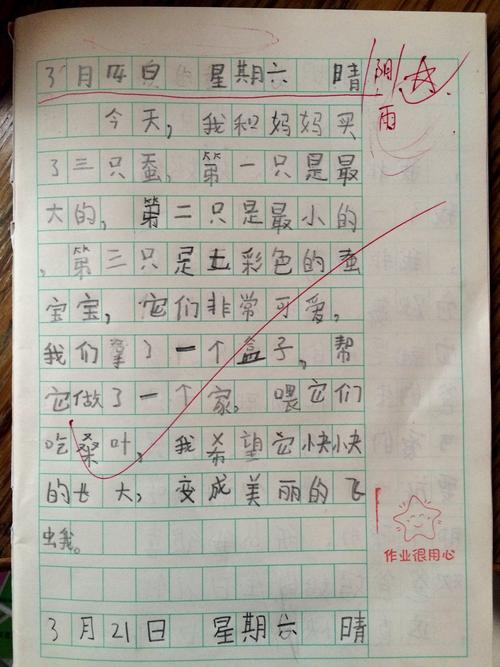 3月14日 星期六 晴 阴雨
今天，我和妈妈买
了三只蚕，第一只是最
大的，第二只是最小的
，第三只是七彩色的蚕
宝宝，它们非常可爱，
我们拿了一个盒子，帮
它做了一个家，喂它们
吃桑叶，我希望它快快
的长大，变成美丽的飞
虫我。
作业很用心
3月21日 星期六 晴